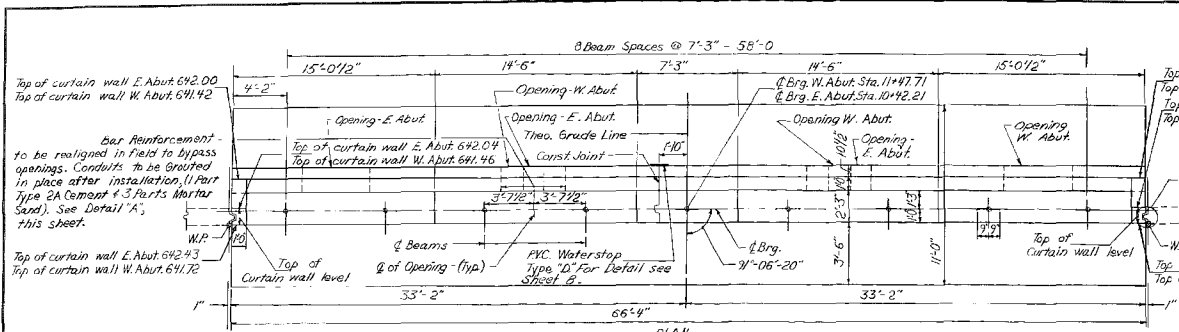 8 Beam Spaces @ 7'-3" - 58'-0
15'-0 1/2"
14'-6"
7'-3"
14'-6"
15'-0 1/2"
Top of curtain wall E. Abut. 642.00
Top of curtain wall W. Abut. 641.42
4'-2"
Opening-W. Abut.
₵ Brg. W. Abut. Sta. 11+47.71
₵ Brg. E. Abut. Sta. 10+42.21
Top
Top
Top
Top
Opening-E. Abut.
Opening-E. Abut.
Theo. Grade Line
Opening W. Abut.
Opening-
E. Abut.
Opening
W. Abut.
10 1/2"
Bar Reinforcement -
to be realigned in field to bypass
openings. Conduits to be Grouted
in place after installation, (1 Part
Type 2A Cement & 3 Parts Mortar
Sand). See Detail "A",
this sheet.
Top of curtain wall E. Abut. 642.04
Top of curtain wall W. Abut. 641.46
Const. Joint
1'-10"
3'-7 1/2"
3'-7 1/2"
2'-3"
9"
9"
W.P.
₵ Beams
₵ Brg.
3'-6"
11'-0"
Top of
Curtain wall level
Top of curtain wall E. Abut. 642.43
Top of curtain wall W. Abut. 641.72
Top of
Curtain wall level
₵ of Opening - (Typ.)
P.V.C. Waterstop
Type "D" For Detail see
Sheet 8.
91°-06'-20"
Top
1"
33'-2"
33'-2"
1"
66'-4"
PLAN